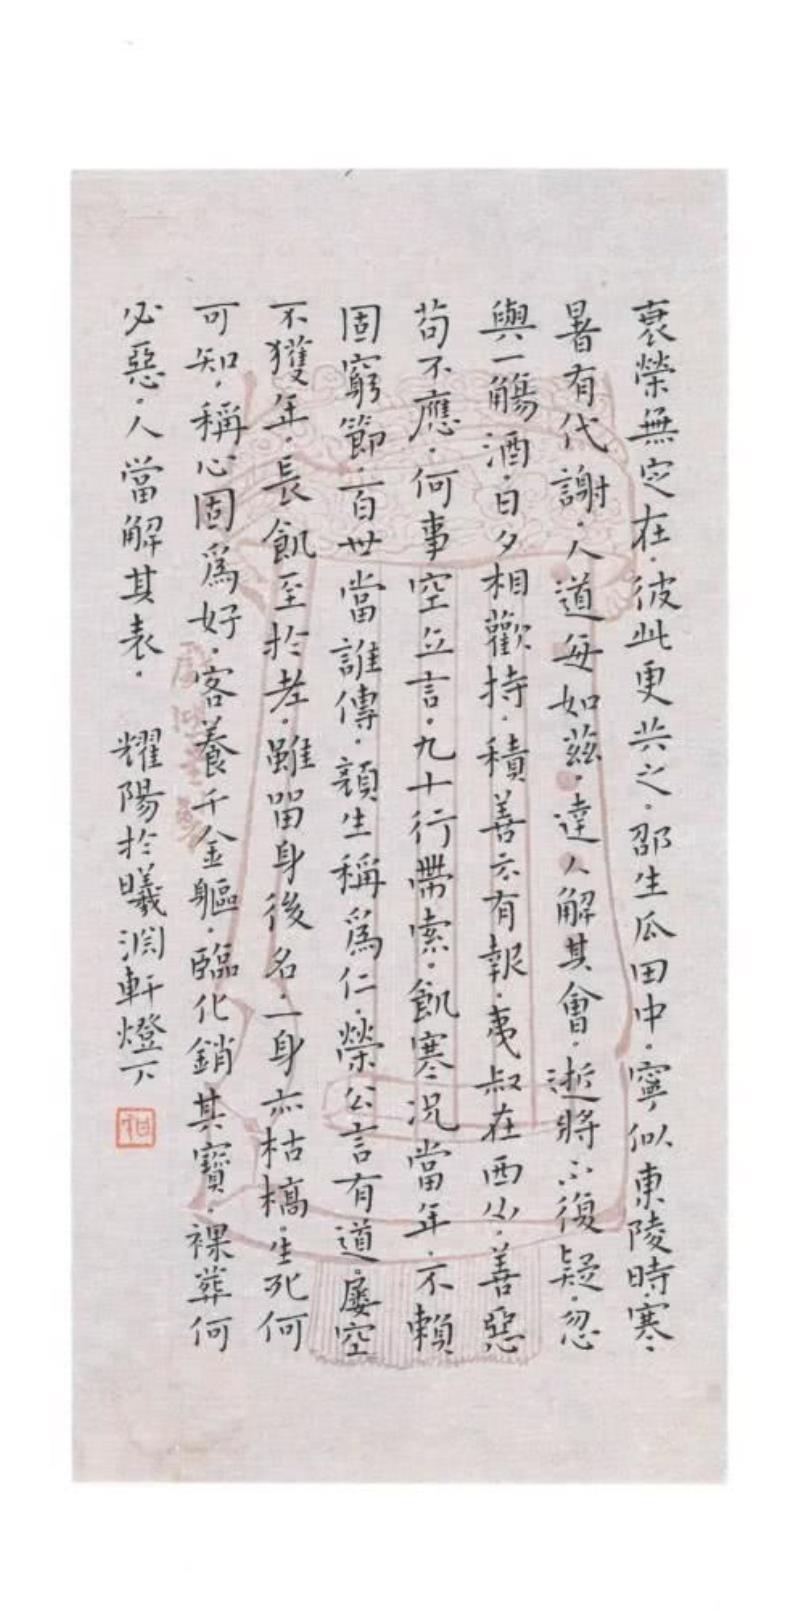 衰榮無定在·彼此更共之·邵生瓜田中·寧似東陵時·寒
暑有代謝·人道每如茲·達人解其會·逝將不復疑·忽
與一觴酒·日夕相歡持·積善亦有報·夷叔在西山·善惡
苟不應·何事空立言·九十行帶索·飢寒況當年·不賴
固窮節·百世當誰傳·顏生稱爲仁·榮公言有道·屢空
不獲年·長飢至於老·雖留身後名·一身亦枯槁·生死何
可知·稱心固爲好·客養千金軀·臨化銷其寶·裸葬何
必惡·人當解其表· 耀陽於曦淵軒燈下